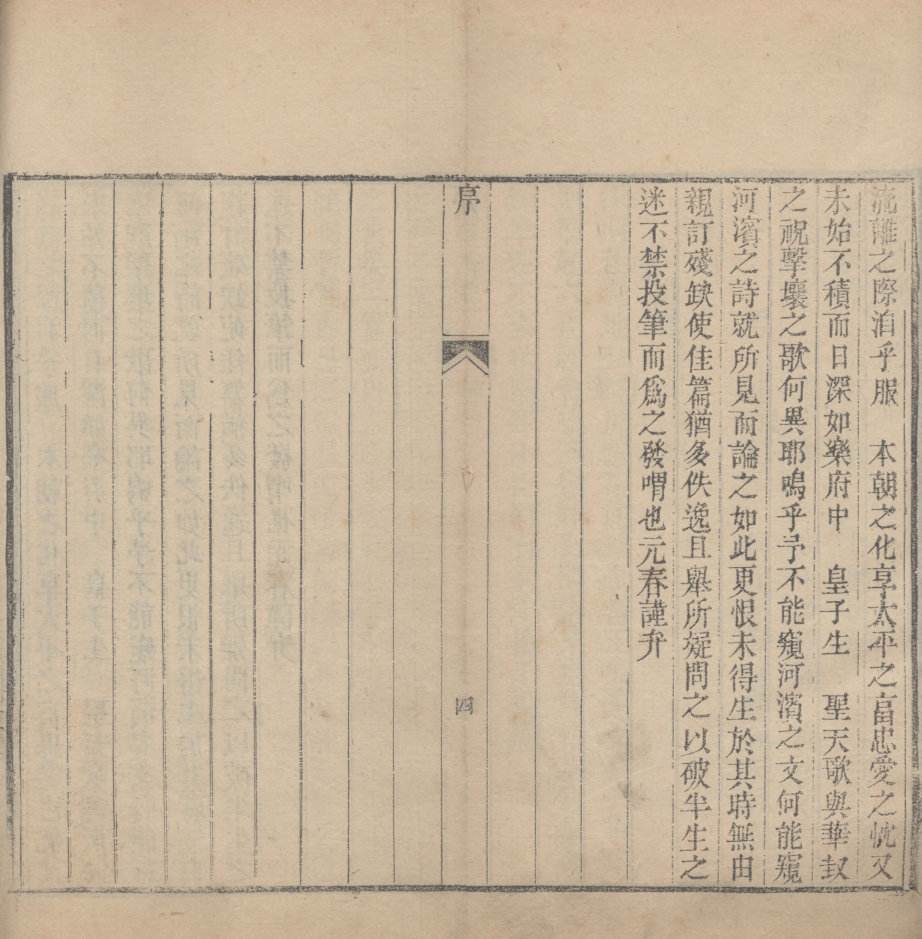 流離之際洎乎服　本朝之化享太平之富忠愛之忱又
未始不積而日深如樂府中　皇子生　聖天歌與華封
之祝擊壤之歌何異耶嗚乎予不能窺河濱之文何能窺
河濱之詩就所見而論之如此更恨未得生於其時無由
親訂殘缺使佳篇猶多佚逸且舉所疑問之以破半生之
迷不禁投筆而爲之發喟也元春謹弁
序
四